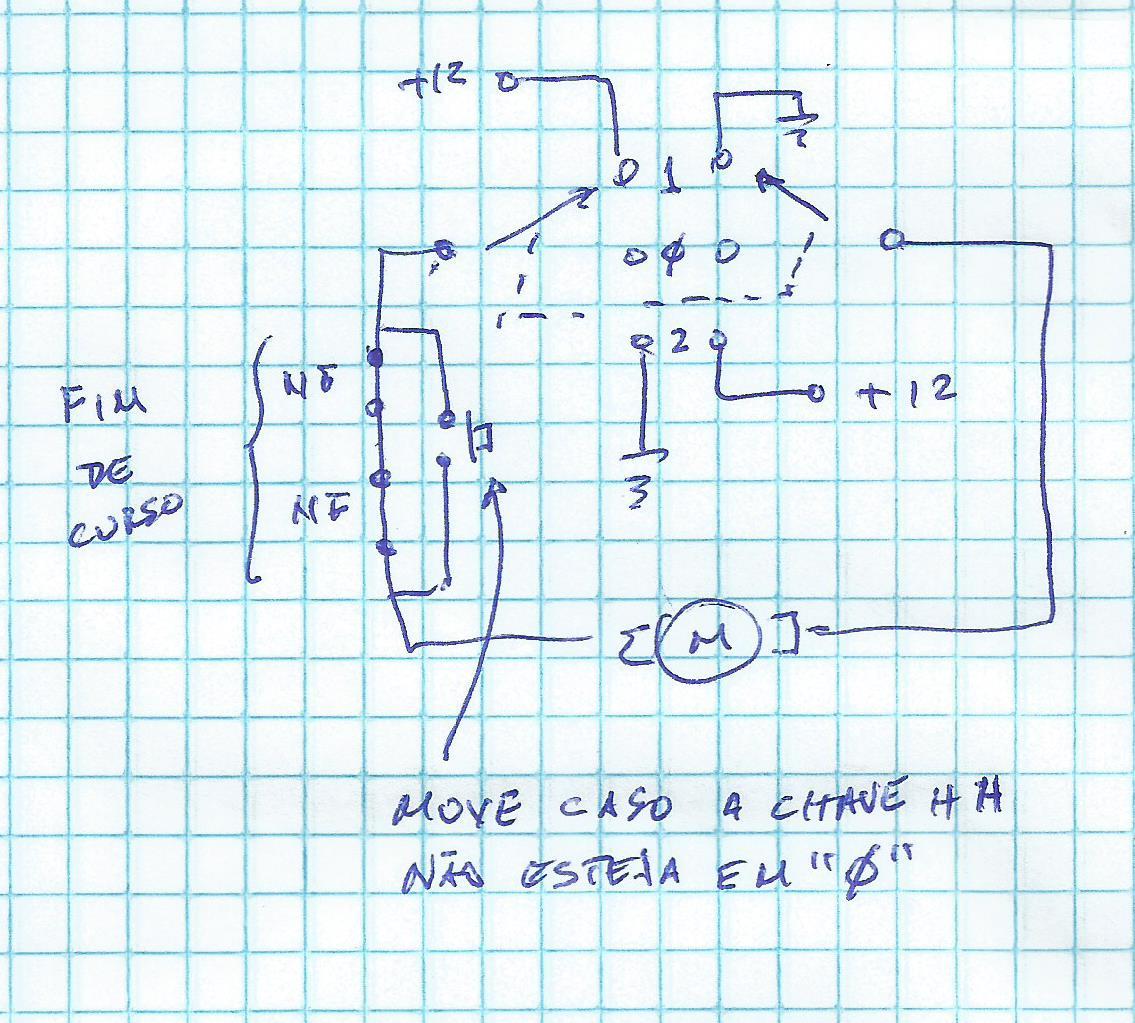 +12
1
Ø
2
+12
FIM
DE
CURSO
NF
NF
M
MOVE CASO A CHAVE HH
NÃO ESTEJA EM "Ø"